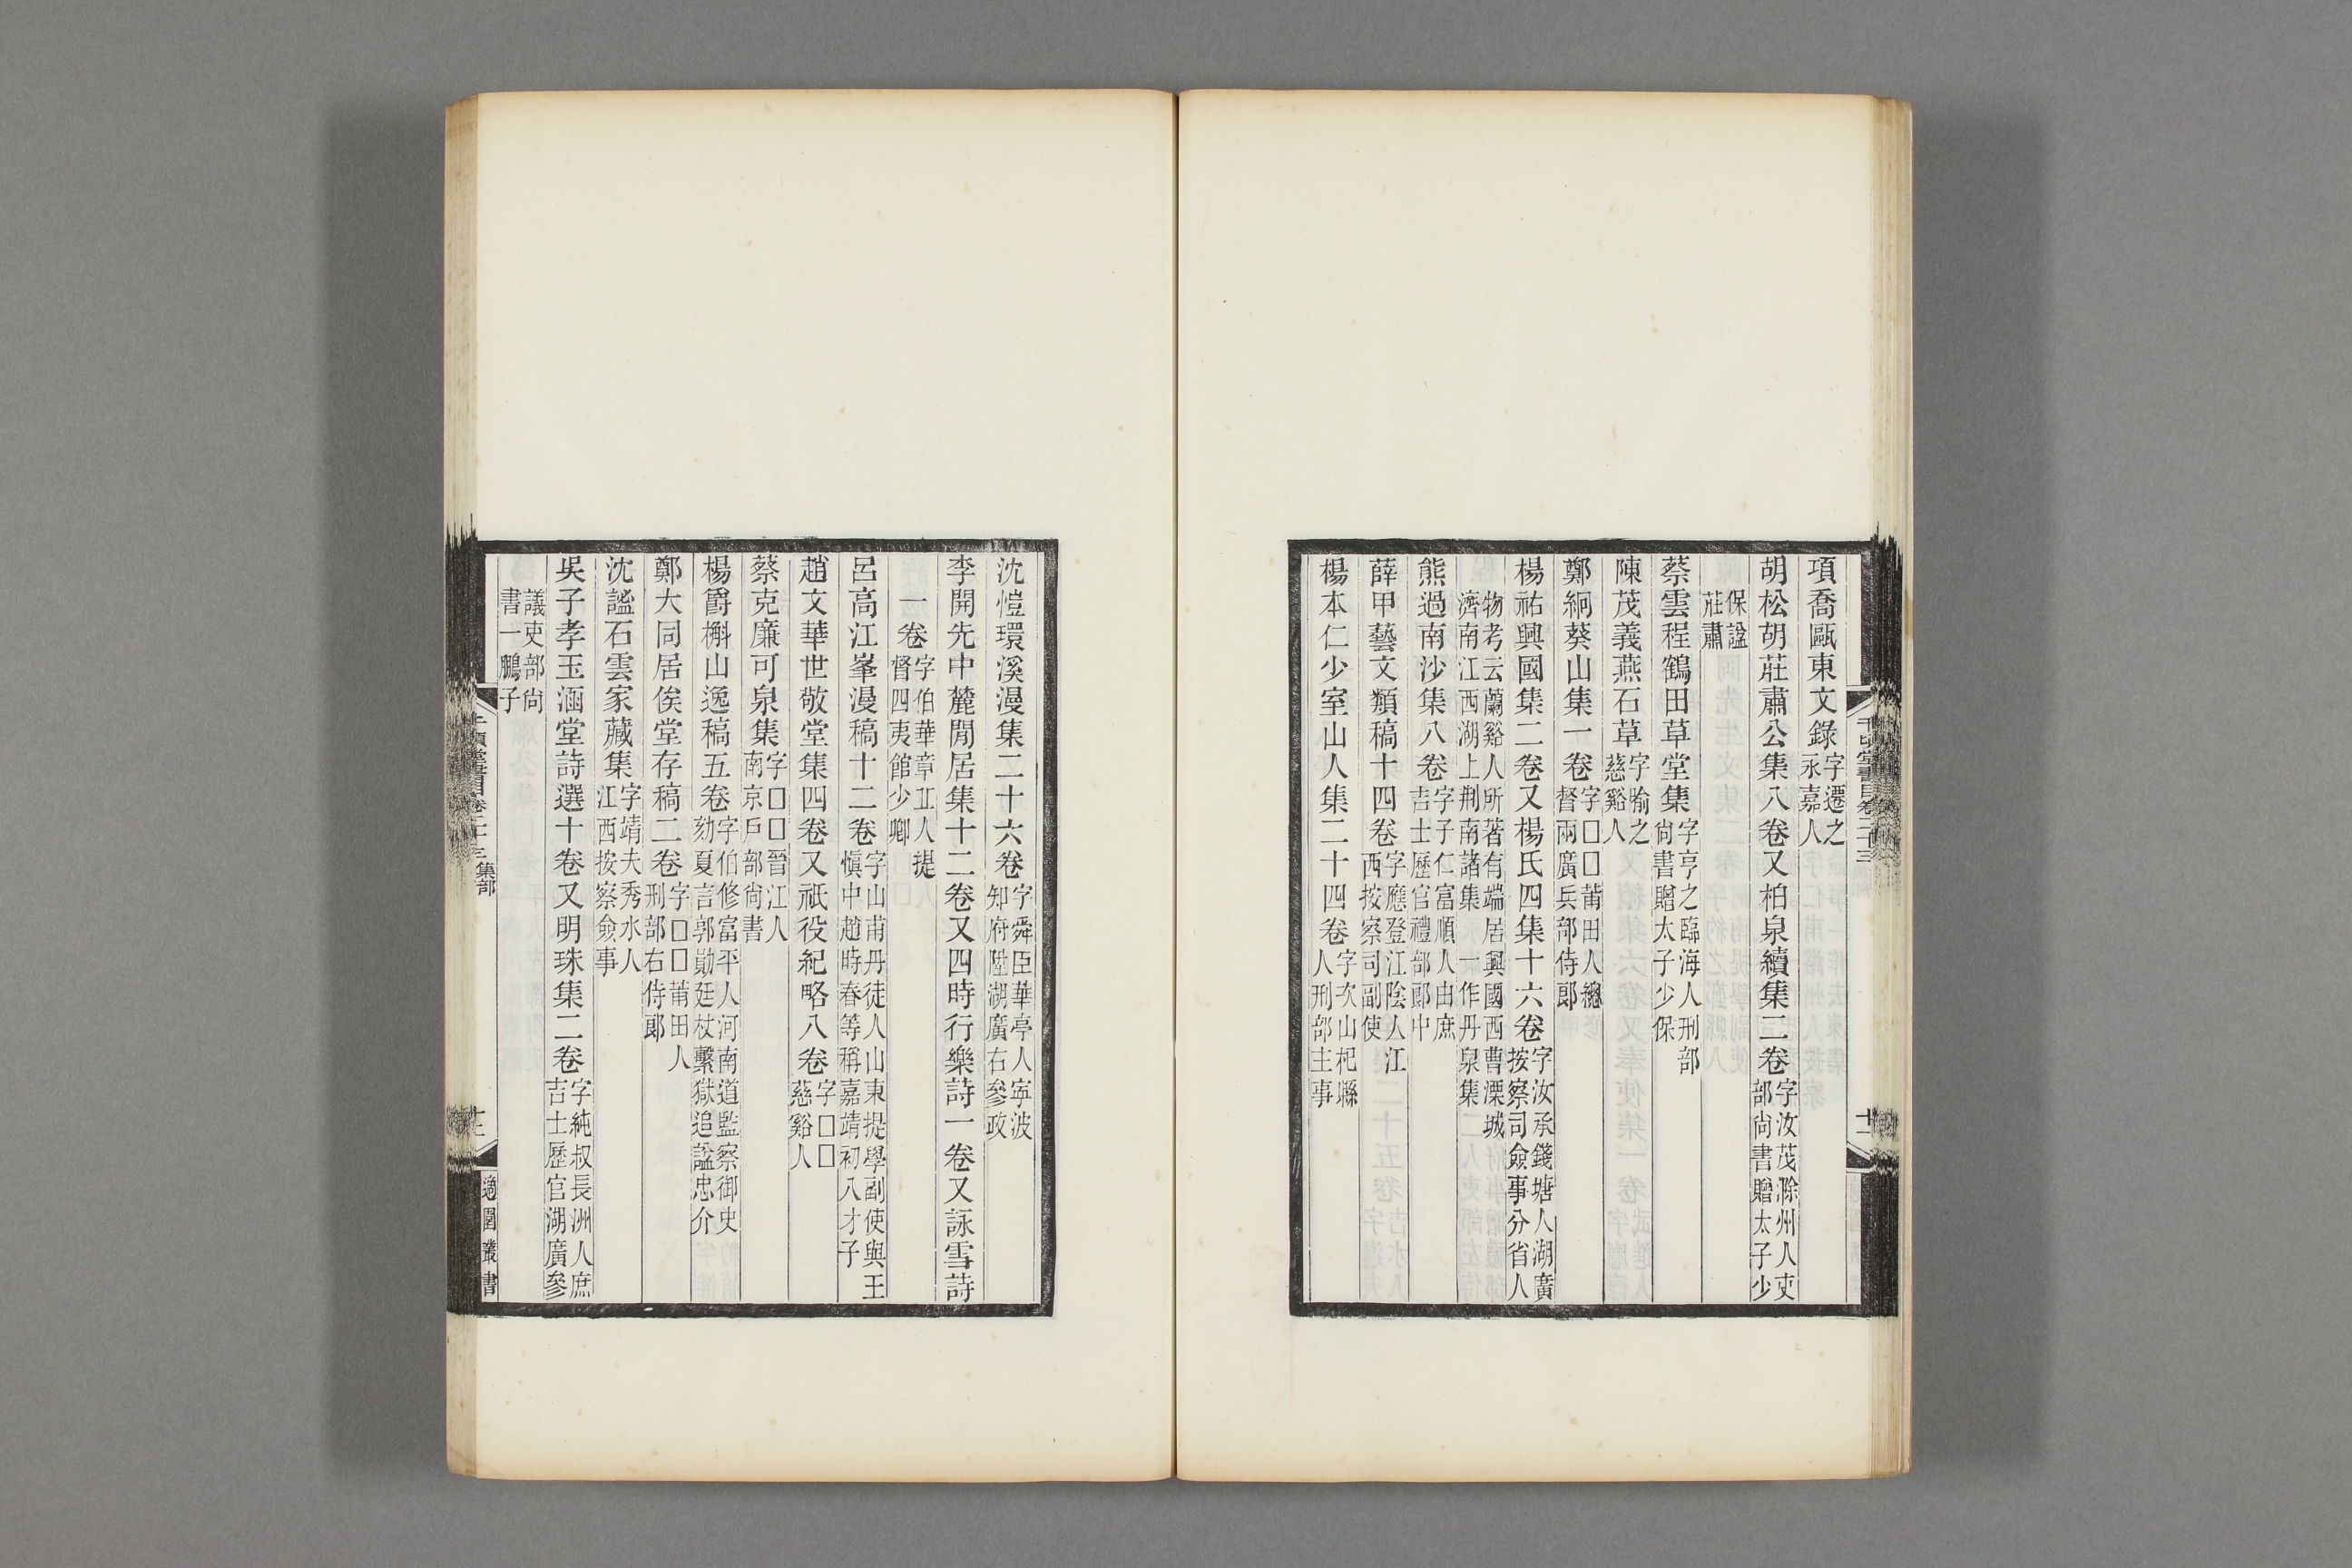 項喬甌東文錄字遷之永嘉人
胡松胡莊肅公集八卷又柏泉續集二卷字汝茂滁州人吏部尚書贈太子少
保諡莊肅
蔡雲程鶴田草堂集字亨之臨海人刑部尚書贈太子少保
陳茂義燕石草字喻之慈谿人
鄭絅葵山集一卷字□□莆田人總督兩廣兵部侍郎
楊祐興國集二卷又楊氏四集十六卷字汝承錢塘人湖廣按察司僉事分省人
物考云蘭谿人所著有端居興國西曹溧城濟南江西湖上荆南諸集一作丹泉集
熊過南沙集八卷字子仁富順人由庶吉士歷官禮部郎中
薛甲藝文類稿十四卷字應登江陰人江西按察司副使
楊本仁少室山人集二十四卷字次山杞縣人刑部主事
千頃堂書目卷二十三
十一
沈愷環溪漫集二十六卷字舜臣華亭人寧波知府陞湖廣右參政
李開先中麓閒居集十二卷又四時行樂詩一卷又詠雪詩
一卷字伯華章丘人提督四夷館少卿
呂高江峯漫稿十二卷字山甫丹徒人山東提學副使與王愼中趙時春等稱嘉靖初八才子
趙文華世敬堂集四卷又祇役紀略八卷字□□慈谿人
蔡克廉可泉集字□□晉江人南京戶部尚書
楊爵槲山逸稿五卷字伯修富平人河南道監察御史劾夏言郭勛廷杖繫獄追諡忠介
鄭大同居俟堂存稿二卷字□□莆田人刑部右侍郎
沈謐石雲家藏集字靖夫秀水人江西按察僉事
吳子孝玉涵堂詩選十卷又明珠集二卷字純叔長洲人庶吉士歷官湖廣參
議吏部尚書一鵬子
千頃堂書目卷二十三 集部
十二
適園叢書